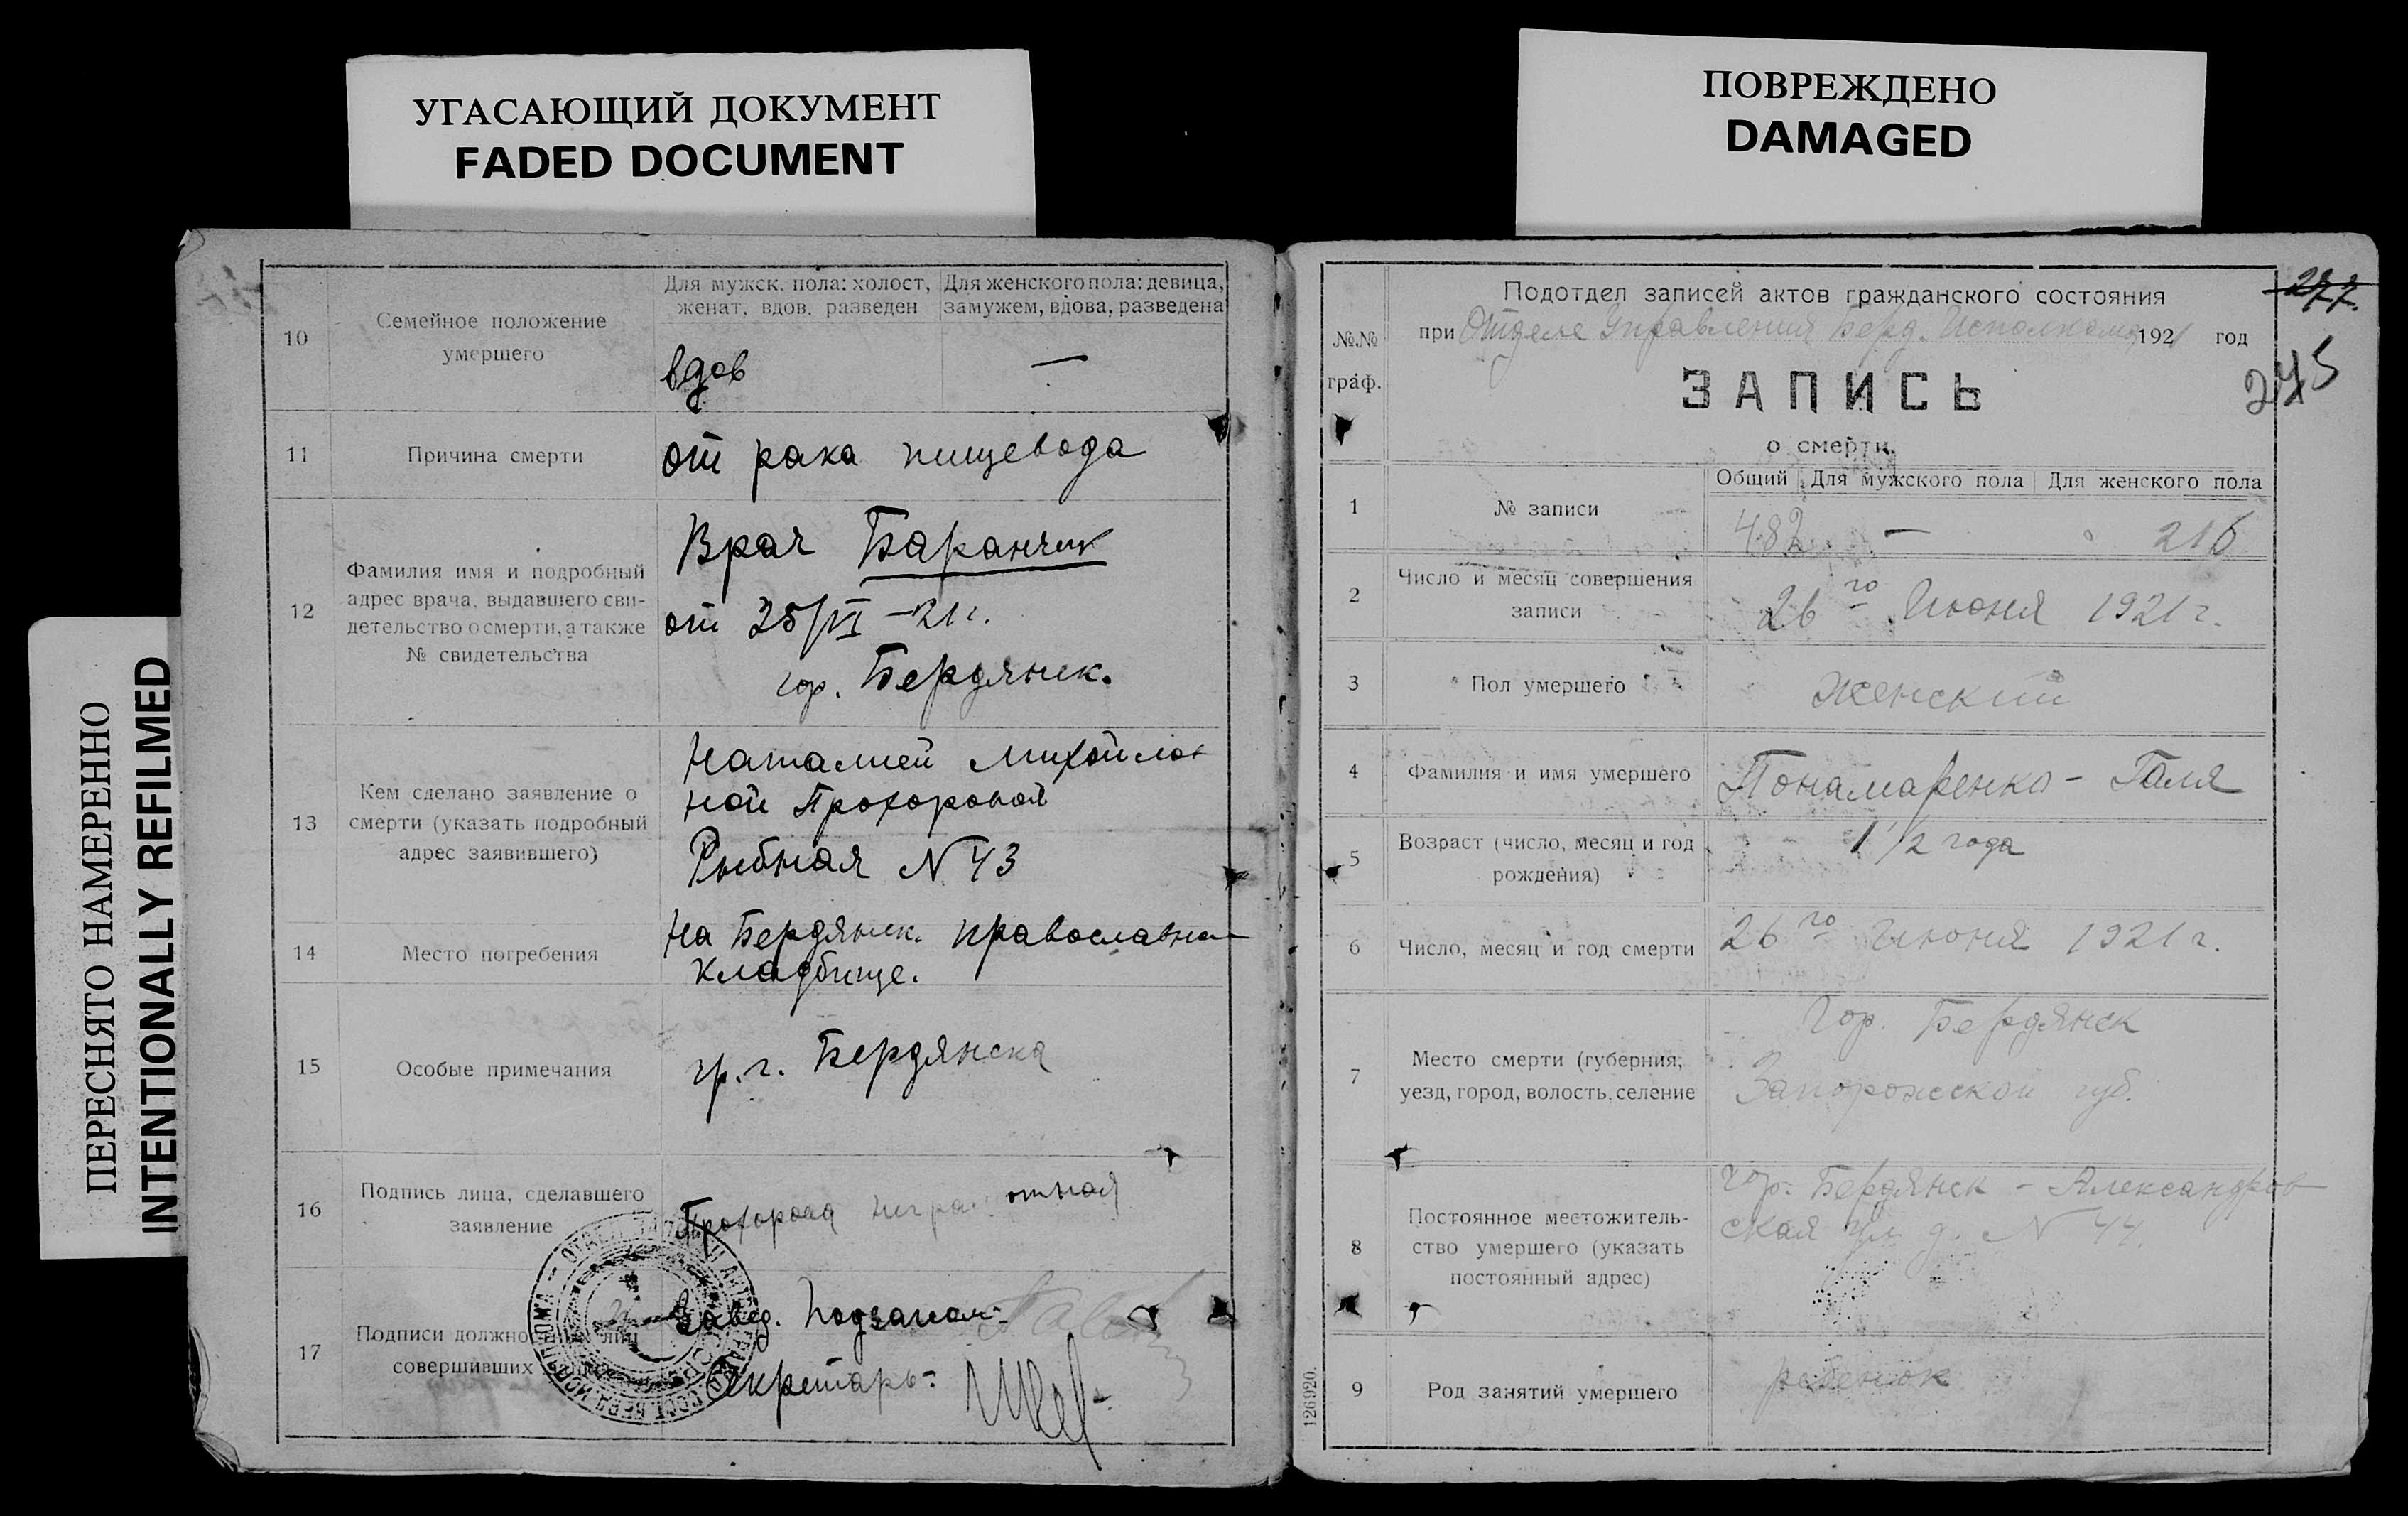 УГАСАЮЩИЙ ДОКУМЕНТ
FADED DOCUMENT
ПОВРЕЖДЕНО
DAMAGED
ПЕРЕСНЯТО НАМЕРЕННО
INTENTIONALLY REFILMED
10
Семейное положение
умершего
Для мужск. пола: холост,
женат, вдов, разведен
Для женского пола: девица,
замужем, вдова, разведена
вдов
—
11
Причина смерти
от рака пищевода
12
Фамилия имя и подробный
адрес врача, выдавшего сви-
детельство о смерти, а также
№ свидетельства
Врач Баранчик
от 25/VI –21 г.
гор. Бердянск.
13
Кем сделано заявление о
смерти (указать подробный
адрес заявившего)
Наталией Михайлов
ной Прохоровой
Рыбная N 43
14
Место погребения
на Бердянск. православн
кладбище.
15
Особые примечания
гр. г. Бердянска
16
Подпись лица, сделавшего
заявление
Прохорова
17
Подписи должно лиц
совершивших
Завед. Подзагсом:
Секретарь:
277
275
№№
граф.
Подотдел записей актов гражданского состояния
при Отделе Управления Берд. Исполкома 1921 год
ЗАПИСЬ
о смерти.
1
№ записи
Общий
Для мужского пола
Для женского пола
482. — 216
2
Число и месяц совершения
записи
26го Июня 1921 г.
3
Пол умершего
Женский
4
Фамилия и имя умершего
Понамаренко – Галя
5
Возраст (число, месяц и год
рождения)
1 1/2 года
6
Число, месяц и год смерти
26го Июня 1921 г.
7
Место смерти (губерния,
уезд, город, волость, селение
Гор. Бердянск
Запорожской губ.
8
Постоянное местожитель-
ство умершего (указать
постоянный адрес)
Гор. Бердянск – Александров
ская ул. д. N 44.
9
Род занятий умершего
ребенок
126920.